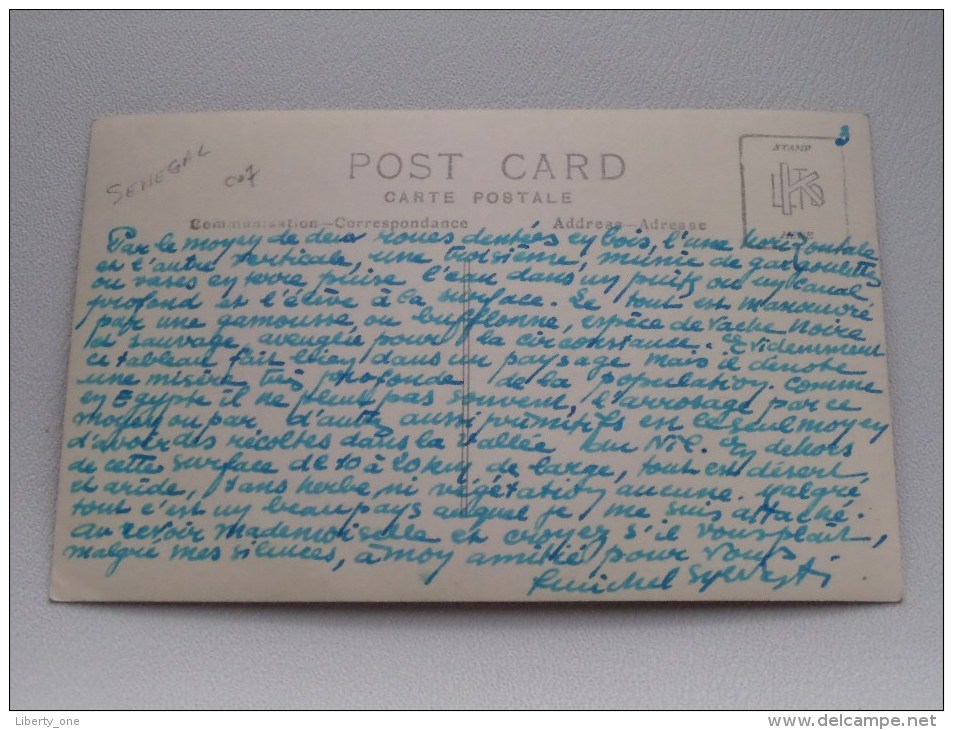 3
SENEGAL
POST CARD
STAMP
CARTE POSTALE
Communication—Correspondance Address—Adresse
HERE
Par le moyen de deux roues dentées en bois, l'une horizontale
et l'autre verticale, une troisième, munie de gargoulettes
ou vases en terre puise l'eau dans un puits ou un canal
profond et l'élève à la surface. Le tout est manœuvré
par une gamousse, ou bufflonne, espèce de vache noire
et sauvage, aveuglée pour la circonstance. Evidemment
ce tableau fait bien dans un paysage mais il dénote
une misère très profonde de la population. Comme
en Egypte il ne pleut pas souvent, l'arrosage par ce
moyen ou par d'autres aussi primitifs est le seul moyen
d'avoir des récoltes dans la vallée du Nil. En dehors
de cette surface de 10 à 20 km de large, tout est désert
et aride, sans herbe ni végétation aucune. Malgré
tout c'est un beau pays auquel je me suis attaché.
Au revoir mademoiselle et croyez s'il vous plait,
malgré mes silences, à mon amitié pour vous.
Liberty_one
www.delcampe.net